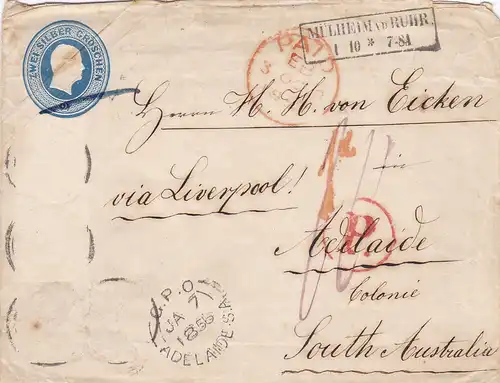 ZWEI SILBER GROSCHEN
MÜLHEIM A/D RUHR.
1 10 * 7-8A
PAID
Herrn H. H. von Eicken
in
via Liverpool!
P.
Adelaide
Colonie
South Australia
G.P.O
JA 7
1856
ADELAIDE S.A.